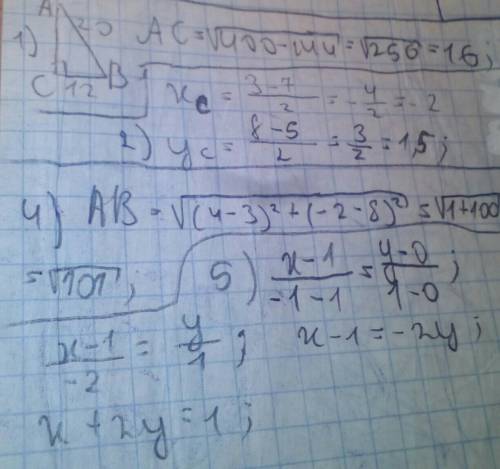 1) A 20 C 12 B AC = √400-144 = √256 = 16;
x_c = (3-7)/2 = -4/2 = -2
2) y_c = (8-5)/2 = 3/2 = 1,5;
4) AB = √(4-3)²+(-2-8)² = √1+100
= √101; 5) (x-1)/(-1-1) = (y-0)/(1-0);
(x-1)/(-2) = y/1; x-1 = -2y;
x + 2y = 1;